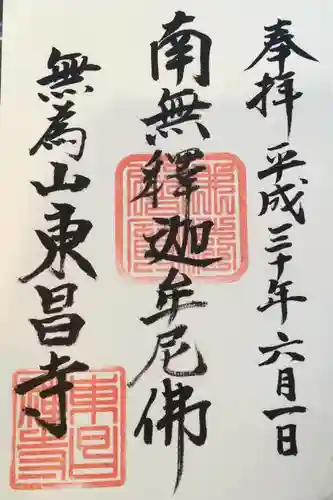 奉拝 平成三十年六月一日
南無釋迦牟尼佛
無為山東昌寺